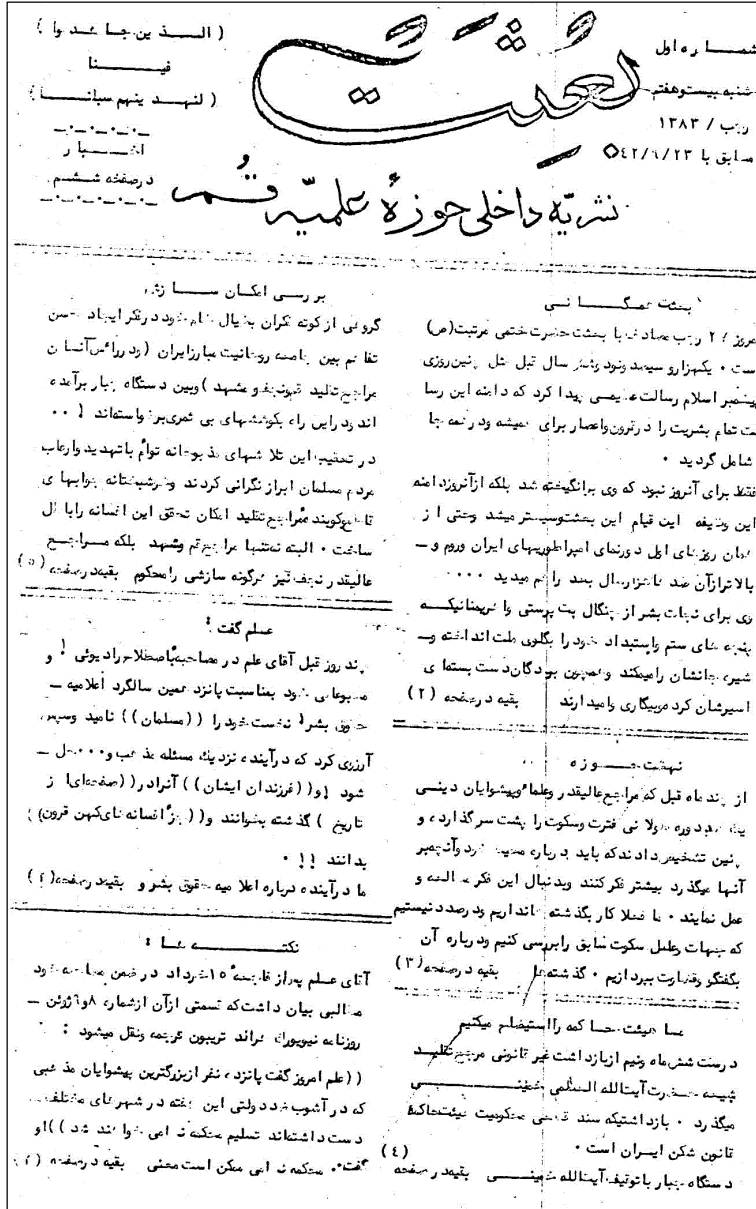 شماره اول
شنبه بیست و هفتم
رجب / ۱۳۸۳
مطابق با ۴۲/۹/۲۳
بعثت
( الــذین جاهدوا )
فینــا
( لنهدینهم سبلنــا )
اخــبار
در صفحه ششم
نشریه داخلی حوزهٔ علمیه قم
بعثت همگــانی
امروز ۲۷ رجب مصادف با بعثت حضرت ختمی مرتبت (ص)
است ۰ یکهزار و سیصد و نود و شش سال قبل مثل چنین روزی
پیغمبر اسلام رسالت عظیمی پیدا کرد که دامنه این رسا
لت تمام بشریت را در قرون و اعصار برای همیشه و در همه جا
شامل گردید ۰
فقط برای آنروز نبود که وی برانگیخته شد بلکه از آنروز دامنه
این وظیفه این قیام این بعثت وسیعتر میشد وحتی از
همان روزهای اول دورنمای امپراطوریهای ایران وروم و ــ
بالاتر از آن صد ها هزار سال بعد را هم میدید ۰۰۰۰
وی برای نجات بشر از چنگال بت پرستی وا
پنجه های ستم واستبداد خود را بگلوی ملت انداخته و ــ
شیره جانشان را میمکند وهمچون بردگان دست بسته ای
اسیرشان کرده وبیگاری وامیدارند بقیه در صفحه (۲)
نهضت حــوزه
از چند ماه قبل که مراجع عالیقدر وعلماء وپیشوایان دینــی
یک دوره طولانی فترت وسکوت را پشت سر گذارده و
چنین تشخیص دادند که باید درباره محیط خود وآنچه بر
آنها میگذرد بیشتر فکر کنند وبدنبال این فکر مطالعه و
عمل نمایند ۰ ما فعلا کار بگذشته نداریم ودر صدد نیستیم
که جهات وعلل سکوت سابق را بررسی کنیم ودرباره آن
بگفتگو وقضاوت بپردازیم ۰ گذشته ها بقیه در صفحه (۳)
ما هیئت حاکمه را استیضاح میکنیم
درست شش ماه ونیم از بازداشت غیر قانونی مرجع تقلیــد
شیعه حضرت آیت الله العظمی خمینــی
میگذرد ۰ بازداشتیکه سند قطعی محکومیت هیئت حاکمهٔ
قانون شکن ایــران است ۰
دستگاه جبار با توقیف آیت الله خمینــی بقیه در صفحه (۴)
بررسی امکان ســازش
گروهی از کوته فکران بخیال خام خود در فکر ایجاد حسن
تفاهم بین جامعه روحانیت مبارز ایران (ودر رأس آنسان
مراجع تقلید قم ونجف ومشهد ) وبین دستگاه جبار برآمده
اند ودر این راه بکوششهای بی ثمری برخواسته اند ! ۰۰
در تعقیب این تلاشهای مذبوحانه توأم با تهدید وارعاب
مردم مسلمان ابراز نگرانی کردند وخوشبختانه جوابهای
مراجع تقلید امکان تحقق این افسانه را باطل
ساخت ۰ البته نه تنها مراجع قم ومشهد بلکه مــراجــع
عالیقدر نجف نیز هرگونه سازشی را محکوم بقیه در صفحه (۵)
علم گفت :
چند روز قبل آقای علم در مصاحبه باصطلاح رادیوئی ! و
مطبوعاتی خود بمناسبت پانزدهمین سالگرد اعلامیه ــ
حقوق بشر ! نخست خود را ((مسلمان)) نامید وسپس
آرزوی کرد که در آینده نزدیک مسئله مذهب و ۰۰۰ حل ــ
شود ! و((فرزندان ایشان)) آنرا در ((صفحه ای از
تاریخ )) گذشته بخوانند و((جزء افسانه های کهن قرون))
بدانند !! ۰
ما در آینده درباره اعلامیه حقوق بشر و بقیه در صفحه
نکتــه هــا :
آقای علم پس از فاجعه ۱۵ خرداد در ضمن مصاحبه خود
مطالبی بیان داشت که قسمتی از آن از شماره ۸ و ۹ ژوئن ــ
روزنامه نیویورک هرالد تریبون ترجمه ونقل میشود :
((علم امروز گفت پانزده نفر از بزرگترین پیشوایان مذهبی
که در آشوب ضد دولتی این هفته در شهرهای مختلف ــ
دست داشته اند تسلیم محکمه نظامی خواهند شد)) او
گفت ۰ محکمه نظامی ممکن است معنی بقیه در صفحه